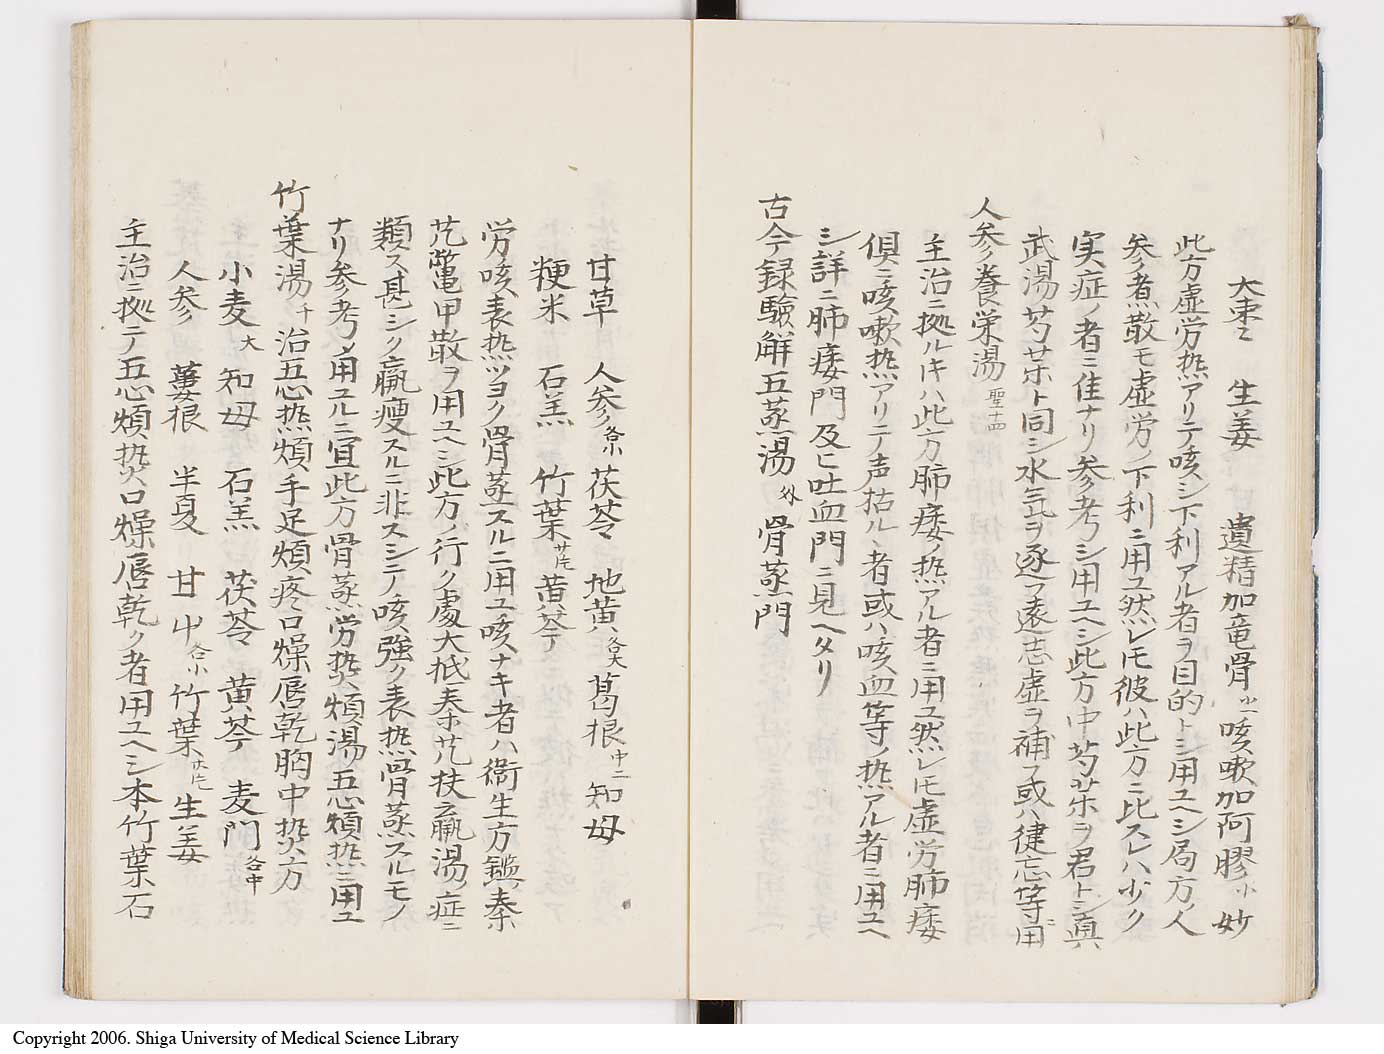 大棗 生姜 遺精加竜骨小 咳嗽加阿膠小 妙
此方虚労热アリテ咳シ下利アル者ヲ目的トシ用ユヘシ局方ノ人
参煮散モ虚労ノ下利ニ用ユ然レモ彼ハ此方ニ比スレハ少ク
実症ノ者ニ佳ナリ参考シ用ユヘシ此方中芍薬ヲ君トシ真
武湯芍薬ト同シ水気ヲ逐フ遠志虚ヲ補フ或ハ健忘等ニ用
人参養栄湯 聖十四
主治ニ拠ルキハ此方肺痿ノ热アル者ニ用ユ然レモ虚労肺痿
倶ニ咳嗽热アリテ声枯ルヽ者或ハ咳血等ノ热アル者ニ用ユヘ
シ詳ニ肺痿門及ヒ吐血門ニ見ヘタリ
古今録驗解五蒸湯 外 骨蒸門
甘草 人参各小 茯苓 地黄各大 葛根中二 知母
粳米 石羔 竹葉 黄芩
労咳表热ツヨク骨蒸スルニ用ユ咳ナキ者ハ衞生方鑑秦
艽鼈甲散ヲ用ユヘシ此方ノ行ク處大抵秦艽扶羸湯ノ症ニ
類ス甚シク羸痩スルニ非スシテ咳強ク表热骨蒸スルモノ
ナリ参考ノ用ユルニ宜此方骨蒸労热煩湯ノ五心煩热ニ用ユ
竹葉湯 千 治五心热煩手足煩疼口燥唇乾胸中热方
小麦大 知母 石羔 茯苓 黄芩 麦門各中
人参 蔞根 半夏 甘中各小 竹葉 生姜
主治ニ拠テ五心煩热口燥唇乾ク者用ユヘシ本竹葉石
Copyright 2006. Shiga University of Medical Science Library